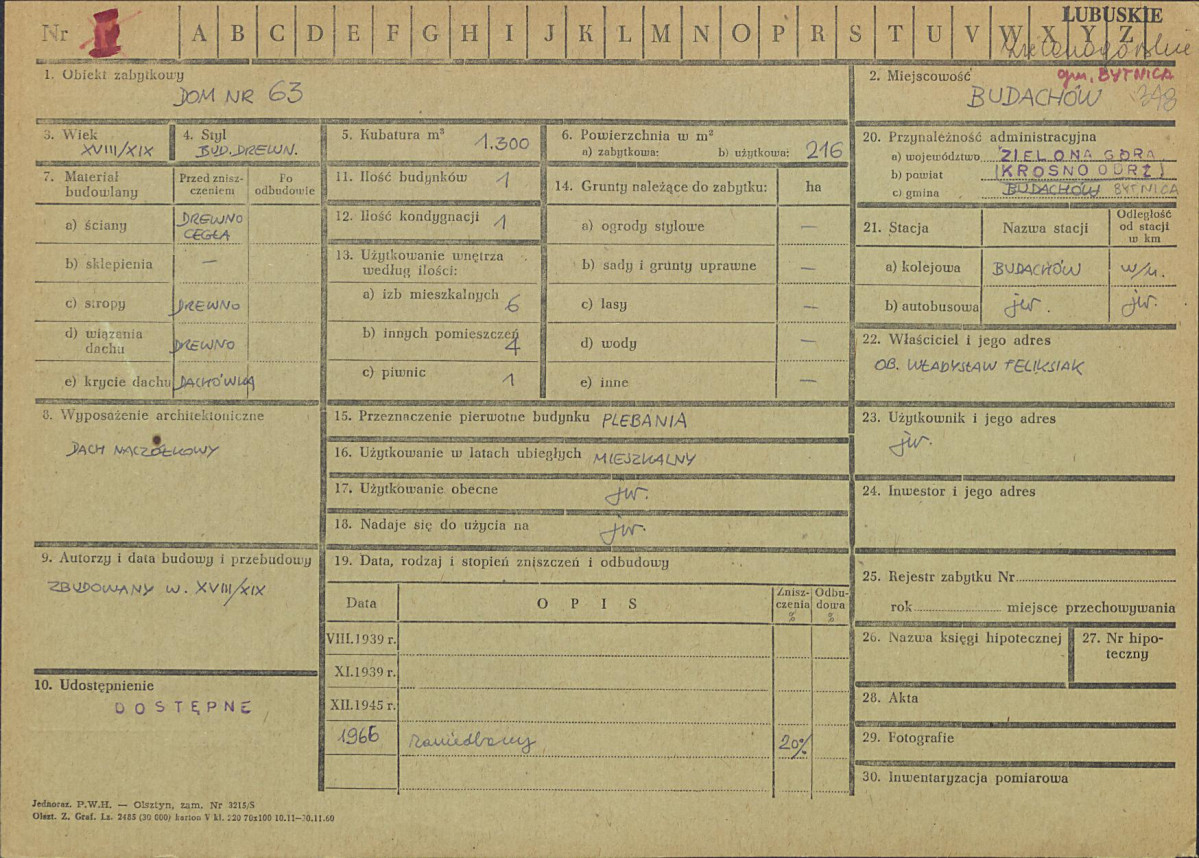 LUBUSKIE
Nr A B C D E F G H I J K L M N O P R S T U V W X Y Z
zielonogórskie
1. Obiekt zabytkowy
DOM NR 63
2. Miejscowość
gm. BYTNICA
BUDACHÓW
3. Wiek
XVIII/XIX
4. Styl
BUD. DREWN.
5. Kubatura m³
1.300
6. Powierzchnia w m²
a) zabytkowa: b) użytkowa: 216
7. Materiał budowlany
Przed zniszczeniem
Po odbudowie
a) ściany DREWNO CEGŁA
b) sklepienia —
c) stropy DREWNO
d) wiązania dachu DREWNO
e) krycie dachu DACHÓWKA
8. Wyposażenie architektoniczne
DACH NACZÓŁKOWY
9. Autorzy i data budowy i przebudowy
ZBUDOWANY W. XVIII/XIX
10. Udostępnienie
DOSTĘPNE
11. Ilość budynków 1
12. Ilość kondygnacji 1
13. Użytkowanie wnętrza według ilości:
a) izb mieszkalnych 6
b) innych pomieszczeń 4
c) piwnic 1
14. Grunty należące do zabytku: ha
a) ogrody stylowe —
b) sady i grunty uprawne —
c) lasy —
d) wody —
e) inne —
15. Przeznaczenie pierwotne budynku PLEBANIA
16. Użytkowanie w latach ubiegłych MIESZKALNY
17. Użytkowanie obecne jw.
18. Nadaje się do użycia na jw.
19. Data, rodzaj i stopień zniszczeń i odbudowy
Data OPIS Zniszczenia % Odbudowa %
VIII.1939 r.
XI.1939 r.
XII.1945 r.
1966 zaniedbany 20%
20. Przynależność administracyjna
a) województwo ZIELONA GÓRA
b) powiat (KROSNO ODRZ)
c) gmina BUDACHÓW BYTNICA
21. Stacja Nazwa stacji Odległość od stacji w km
a) kolejowa BUDACHÓW w/m.
b) autobusowa jw. jw.
22. Właściciel i jego adres
OB. WŁADYSŁAW FELIKSIAK
23. Użytkownik i jego adres
jw.
24. Inwestor i jego adres
25. Rejestr zabytku Nr
rok miejsce przechowywania
26. Nazwa księgi hipotecznej
27. Nr hipoteczny
28. Akta
29. Fotografie
30. Inwentaryzacja pomiarowa
Jednoraz. P.W.H. — Olsztyn, zam. Nr 3215/S
Olszt. Z. Graf. Lz. 2485 (30 000) karton V kl. 220 70x100 10.11—30.11.60